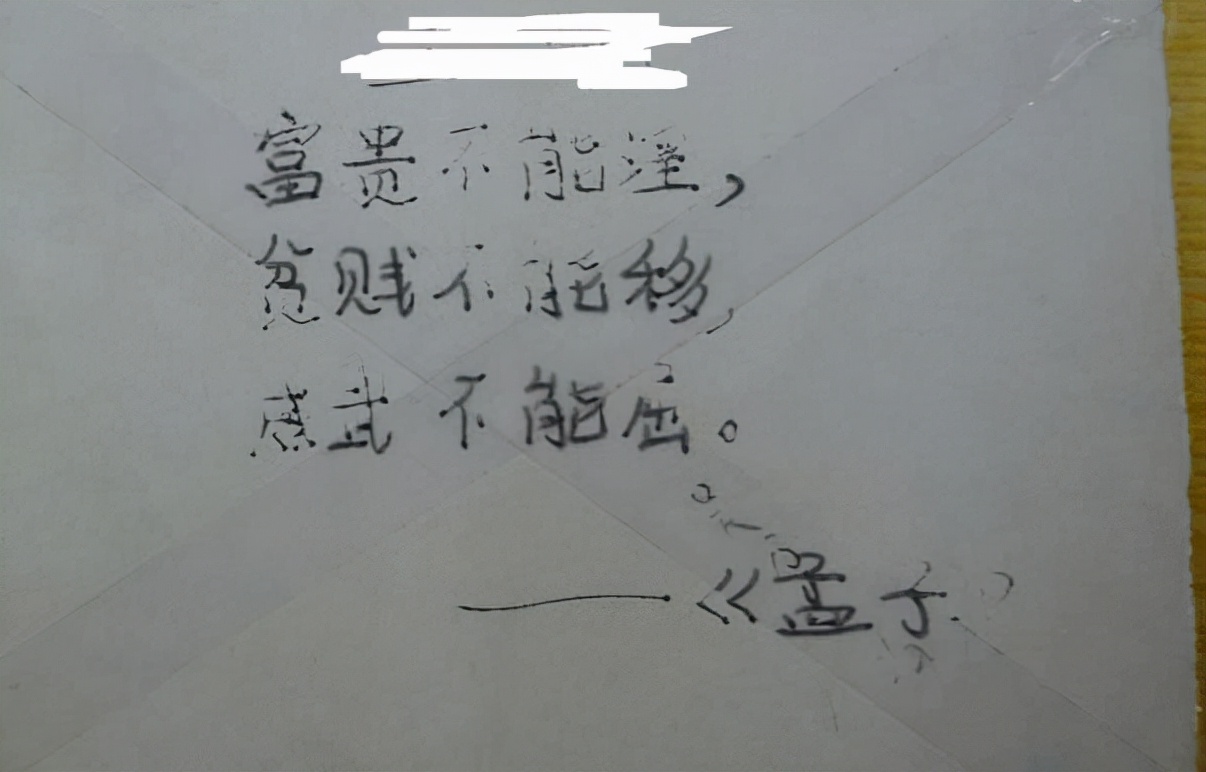 富贵不能淫，
贫贱不能移，
威武不能屈。
——《孟子